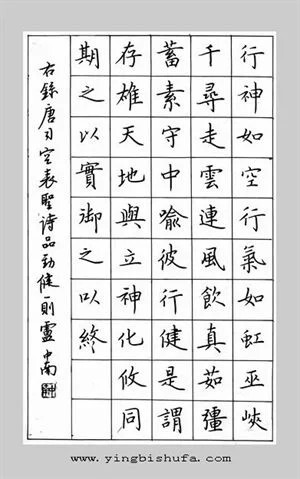 行神如空行氣如虹巫峽
千尋走雲連風飲真茹彊
蓄素守中喻彼行健是謂
存雄天地與立神化攸同
期之以實御之以終
右錄唐司空表聖诗品劲健一則盧中南
www.yingbishufa.com